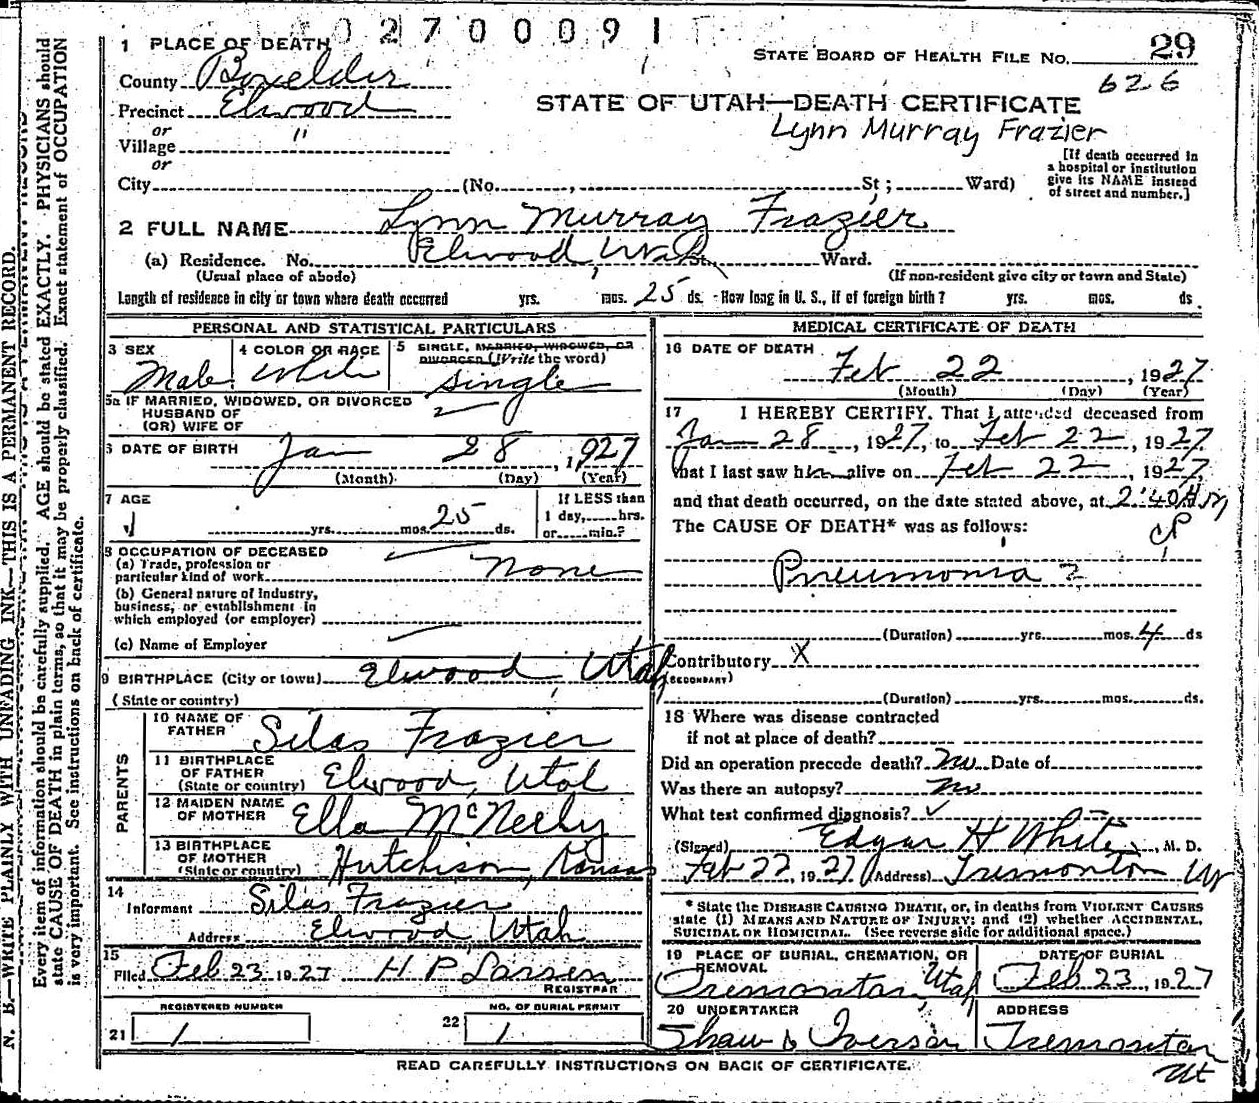 02700091
1 PLACE OF DEATH
STATE BOARD OF HEALTH FILE NO. 29
County Boxelder
626
Precinct Elwood
STATE OF UTAH—DEATH CERTIFICATE
or
Village "
Lynn Murray Frazier
or
City (No. , St ; Ward)
[If death occurred in
a hospital or institution
give its NAME instead
of street and number.]
2 FULL NAME Lynn Murray Frazier
(a) Residence. No. Elwood, Utah Ward.
(Usual place of abode) (If non-resident give city or town and State)
Length of residence in city or town where death occurred yrs. mos. 25 ds. - How long in U. S., if of foreign birth? yrs. mos. ds.
PERSONAL AND STATISTICAL PARTICULARS
3 SEX
Male
4 COLOR OR RACE
White
5 SINGLE, MARRIED, WIDOWED, OR
DIVORCED (Write the word)
single
5a IF MARRIED, WIDOWED, OR DIVORCED
HUSBAND OF
(OR) WIFE OF
6 DATE OF BIRTH Jan 28, 1927
(Month) (Day) (Year)
7 AGE
yrs. mos. 25 ds.
If LESS than
1 day, hrs.
or min.?
8 OCCUPATION OF DECEASED
(a) Trade, profession or
particular kind of work none
(b) General nature of Industry,
business, or establishment in
which employed (or employer)
(c) Name of Employer
9 BIRTHPLACE (City or town) Elwood, Utah
(State or country)
PARENTS
10 NAME OF
FATHER Silas Frazier
11 BIRTHPLACE
OF FATHER
(State or country) Elwood, Utah
12 MAIDEN NAME
OF MOTHER Ella McNeely
13 BIRTHPLACE
OF MOTHER
(State or country) Hutchison, Kansas
14
Informant Silas Frazier
Address Elwood Utah
15
Filed Feb 23 1927 H P Larsen
REGISTRAR
REGISTERED NUMBER
21 1
NO. OF BURIAL PERMIT
22 1
MEDICAL CERTIFICATE OF DEATH
16 DATE OF DEATH
Feb 22, 1927
(Month) (Day) (Year)
17 I HEREBY CERTIFY, That I attended deceased from
Jan 28, 1927, to Feb 22, 1927
that I last saw him alive on Feb 22, 1927,
and that death occurred, on the date stated above, at 2:40 A m
The CAUSE OF DEATH* was as follows:
Pneumonia ?
(Duration) yrs. mos. 4 ds
Contributory X
(SECONDARY)
(Duration) yrs. mos. ds.
18 Where was disease contracted
if not at place of death?
Did an operation precede death? no Date of
Was there an autopsy? no
What test confirmed diagnosis?
(Signed) Edgar H White, M. D.
Feb 22, 1927 (Address) Tremonton Ut
* State the DISEASE CAUSING DEATH, or, in deaths from VIOLENT CAUSES
state (1) MEANS AND NATURE OF INJURY; and (2) whether ACCIDENTAL,
SUICIDAL OR HOMICIDAL. (See reverse side for additional space.)
19 PLACE OF BURIAL, CREMATION, OR
REMOVAL
Tremonton, Utah
DATE OF BURIAL
Feb 23, 1927
20 UNDERTAKER
Shaw & Iverson
ADDRESS
Tremonton
Ut
READ CAREFULLY INSTRUCTIONS ON BACK OF CERTIFICATE.
N. B.—WRITE PLAINLY WITH UNFADING INK—THIS IS A PERMANENT RECORD.
Every item of information should be carefully supplied. AGE should be stated EXACTLY. PHYSICIANS should
state CAUSE OF DEATH in plain terms, so that it may be properly classified. Exact statement of OCCUPATION
is very important. See instructions on back of certificate.